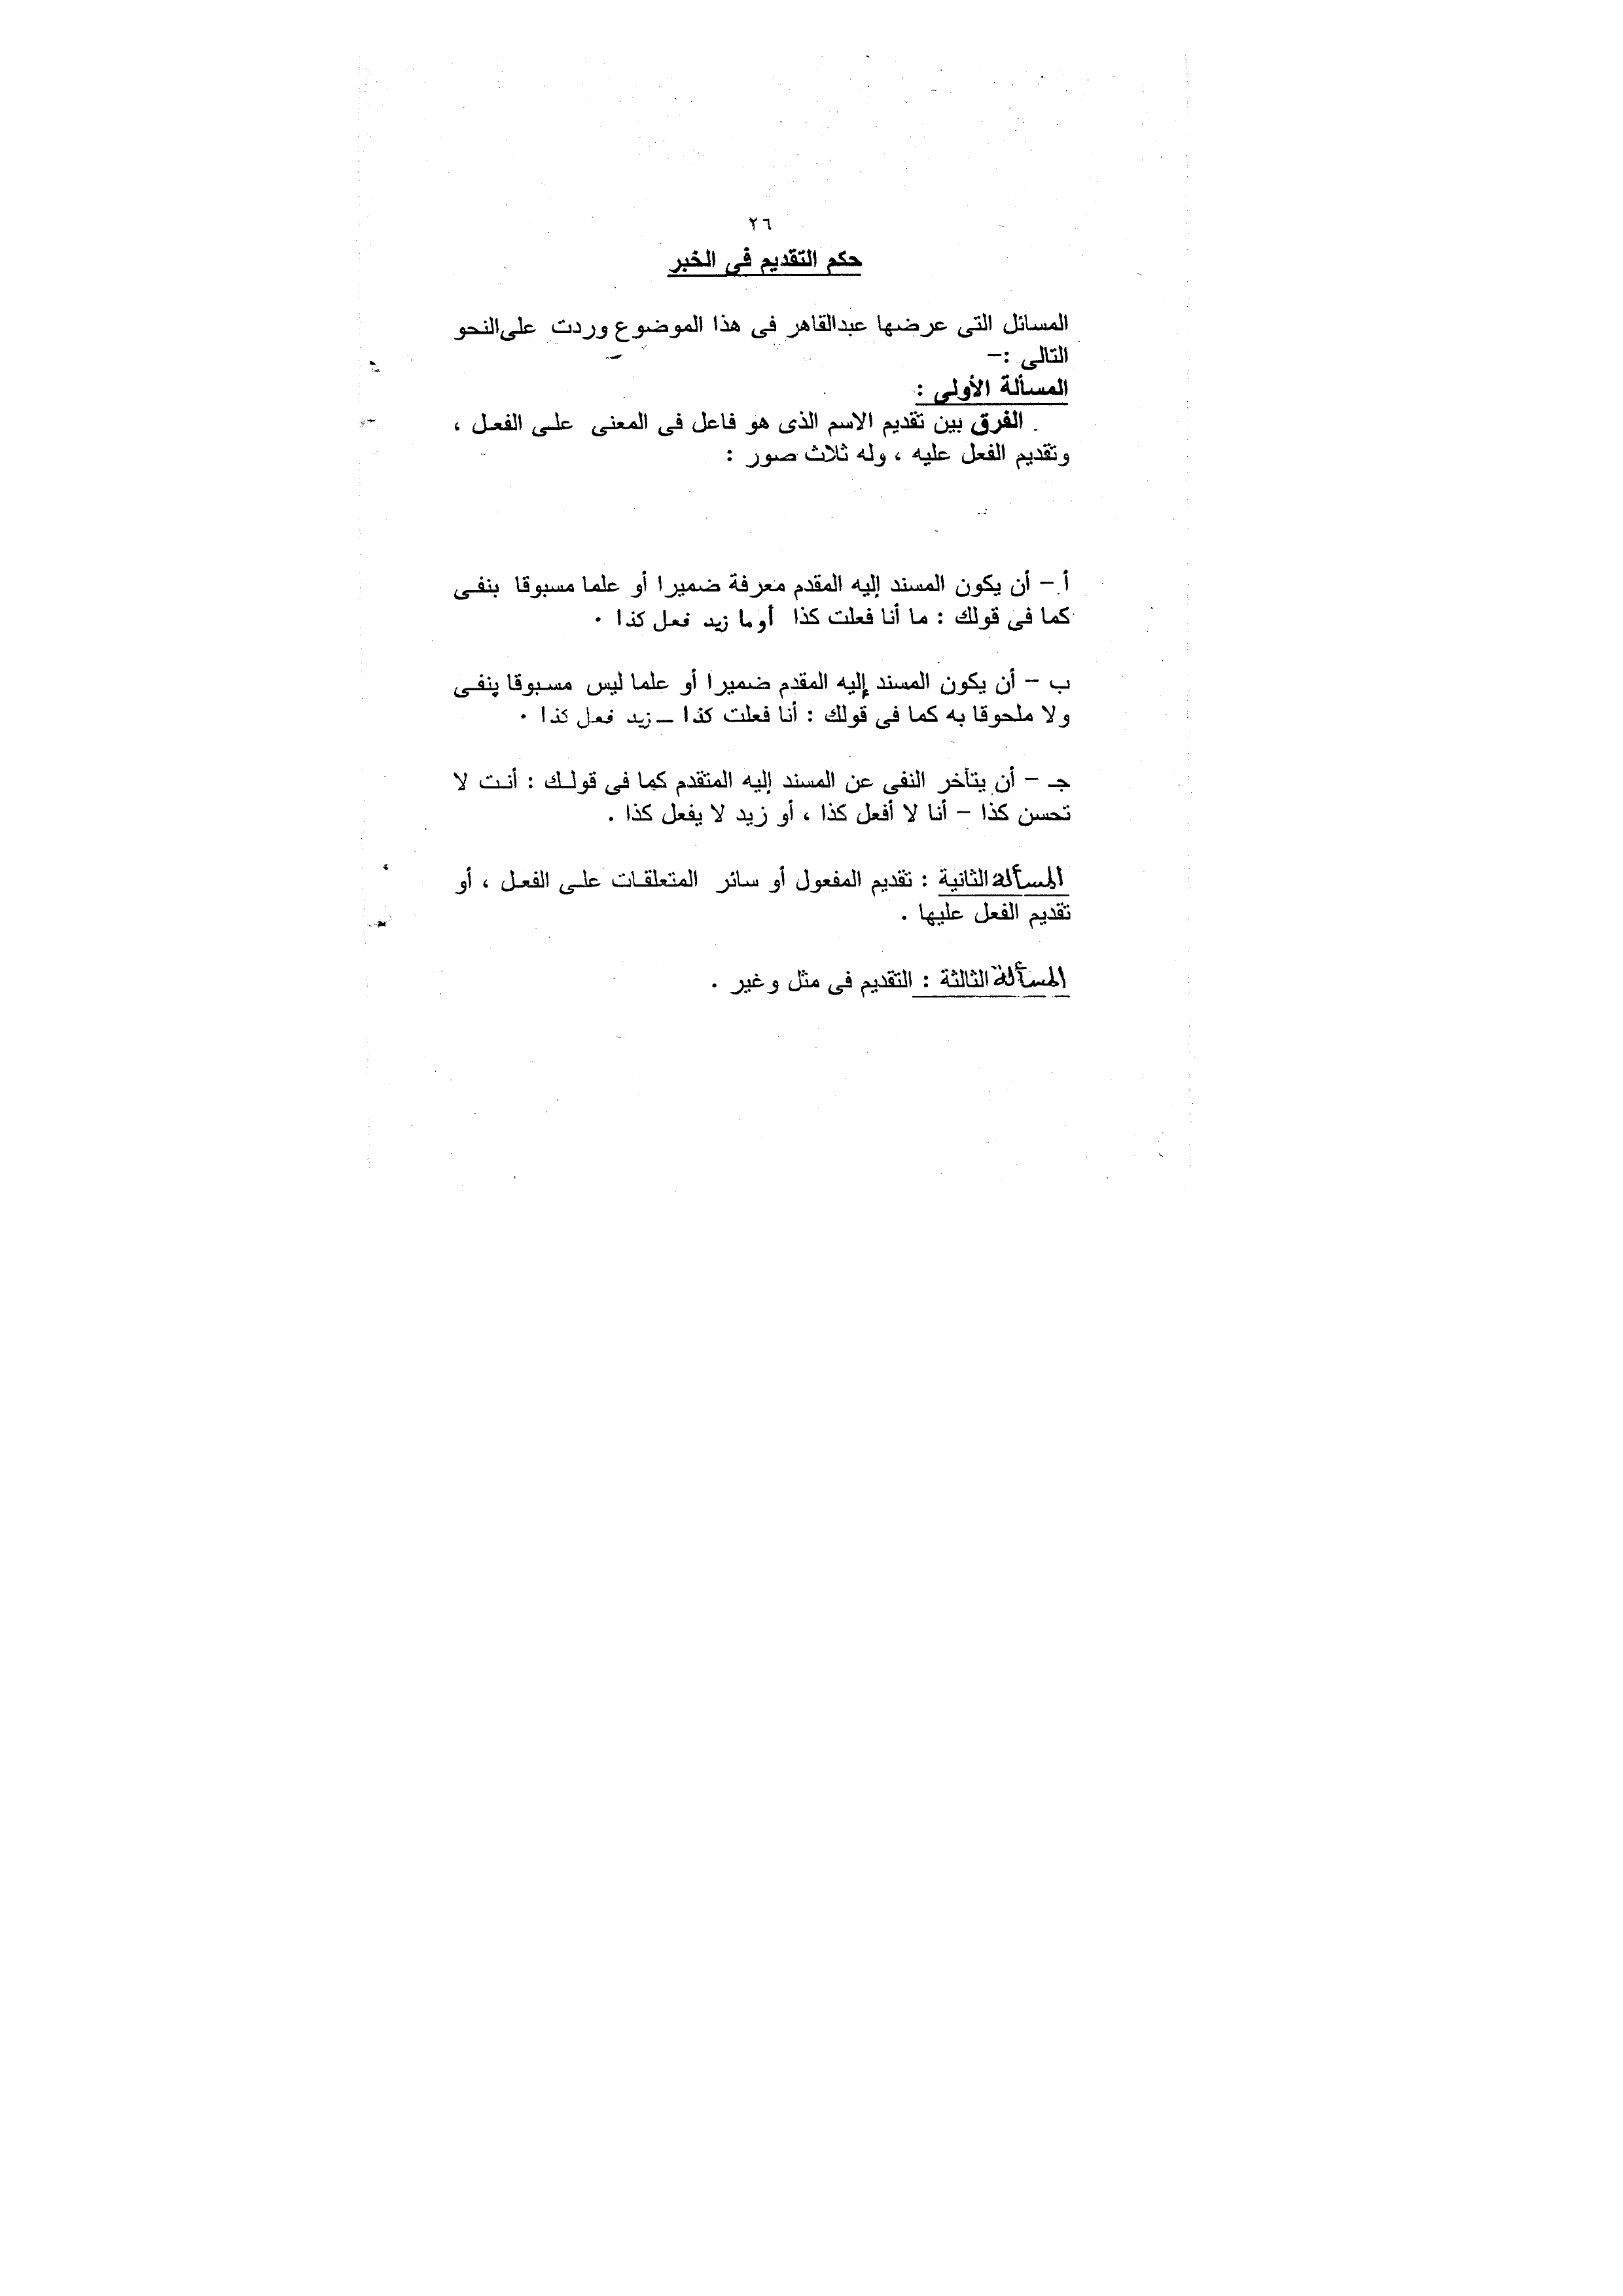 ٢٦
حكم التقديم فى الخبر
المسائل التى عرضها عبدالقاهر فى هذا الموضوع وردت على النحو
التالى :–
المسألة الأولى :
الفرق بين تقديم الاسم الذى هو فاعل فى المعنى على الفعل ،
وتقديم الفعل عليه ، وله ثلاث صور :
أ – أن يكون المسند إليه المقدم معرفة ضميرا أو علما مسبوقا بنفى
كما فى قولك : ما أنا فعلت كذا أو ما زيد فعل كذا .
ب – أن يكون المسند إليه المقدم ضميرا أو علما ليس مسبوقا بنفى
ولا ملحوقا به كما فى قولك : أنا فعلت كذا – زيد فعل كذا .
جـ – أن يتأخر النفى عن المسند إليه المتقدم كما فى قولك : أنت لا
تحسن كذا – أنا لا أفعل كذا ، أو زيد لا يفعل كذا .
المسألة الثانية : تقديم المفعول أو سائر المتعلقات على الفعل ، أو
تقديم الفعل عليها .
المسألة الثالثة : التقديم فى مثل وغير .